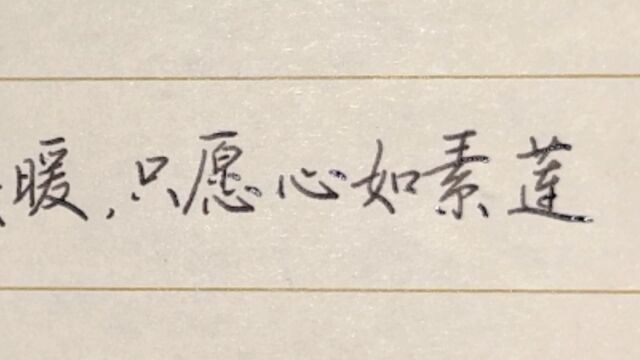 暖,只愿心如素莲